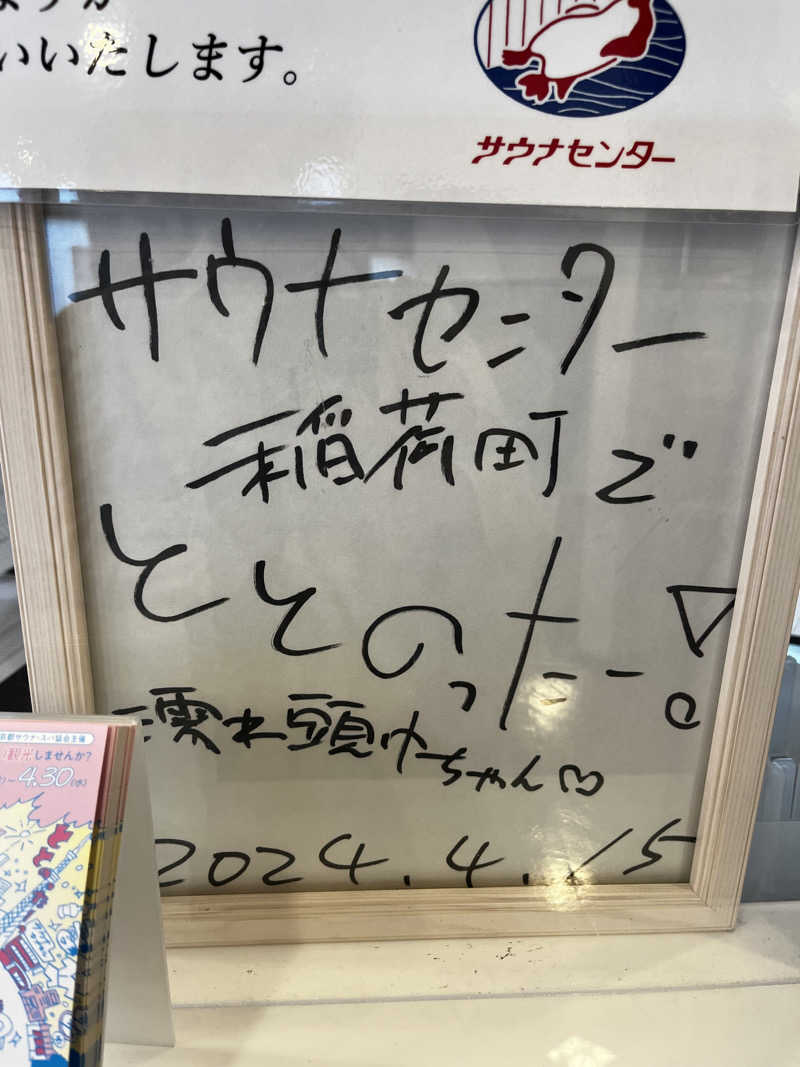 いいたします。
サウナセンター
サウナセンター
稲荷町で
ととのった!
濡れ頭巾ちゃん♡
2024.4.15
京都サウナ・スパ協会主催
観光しませんか?
〜4.30(水)